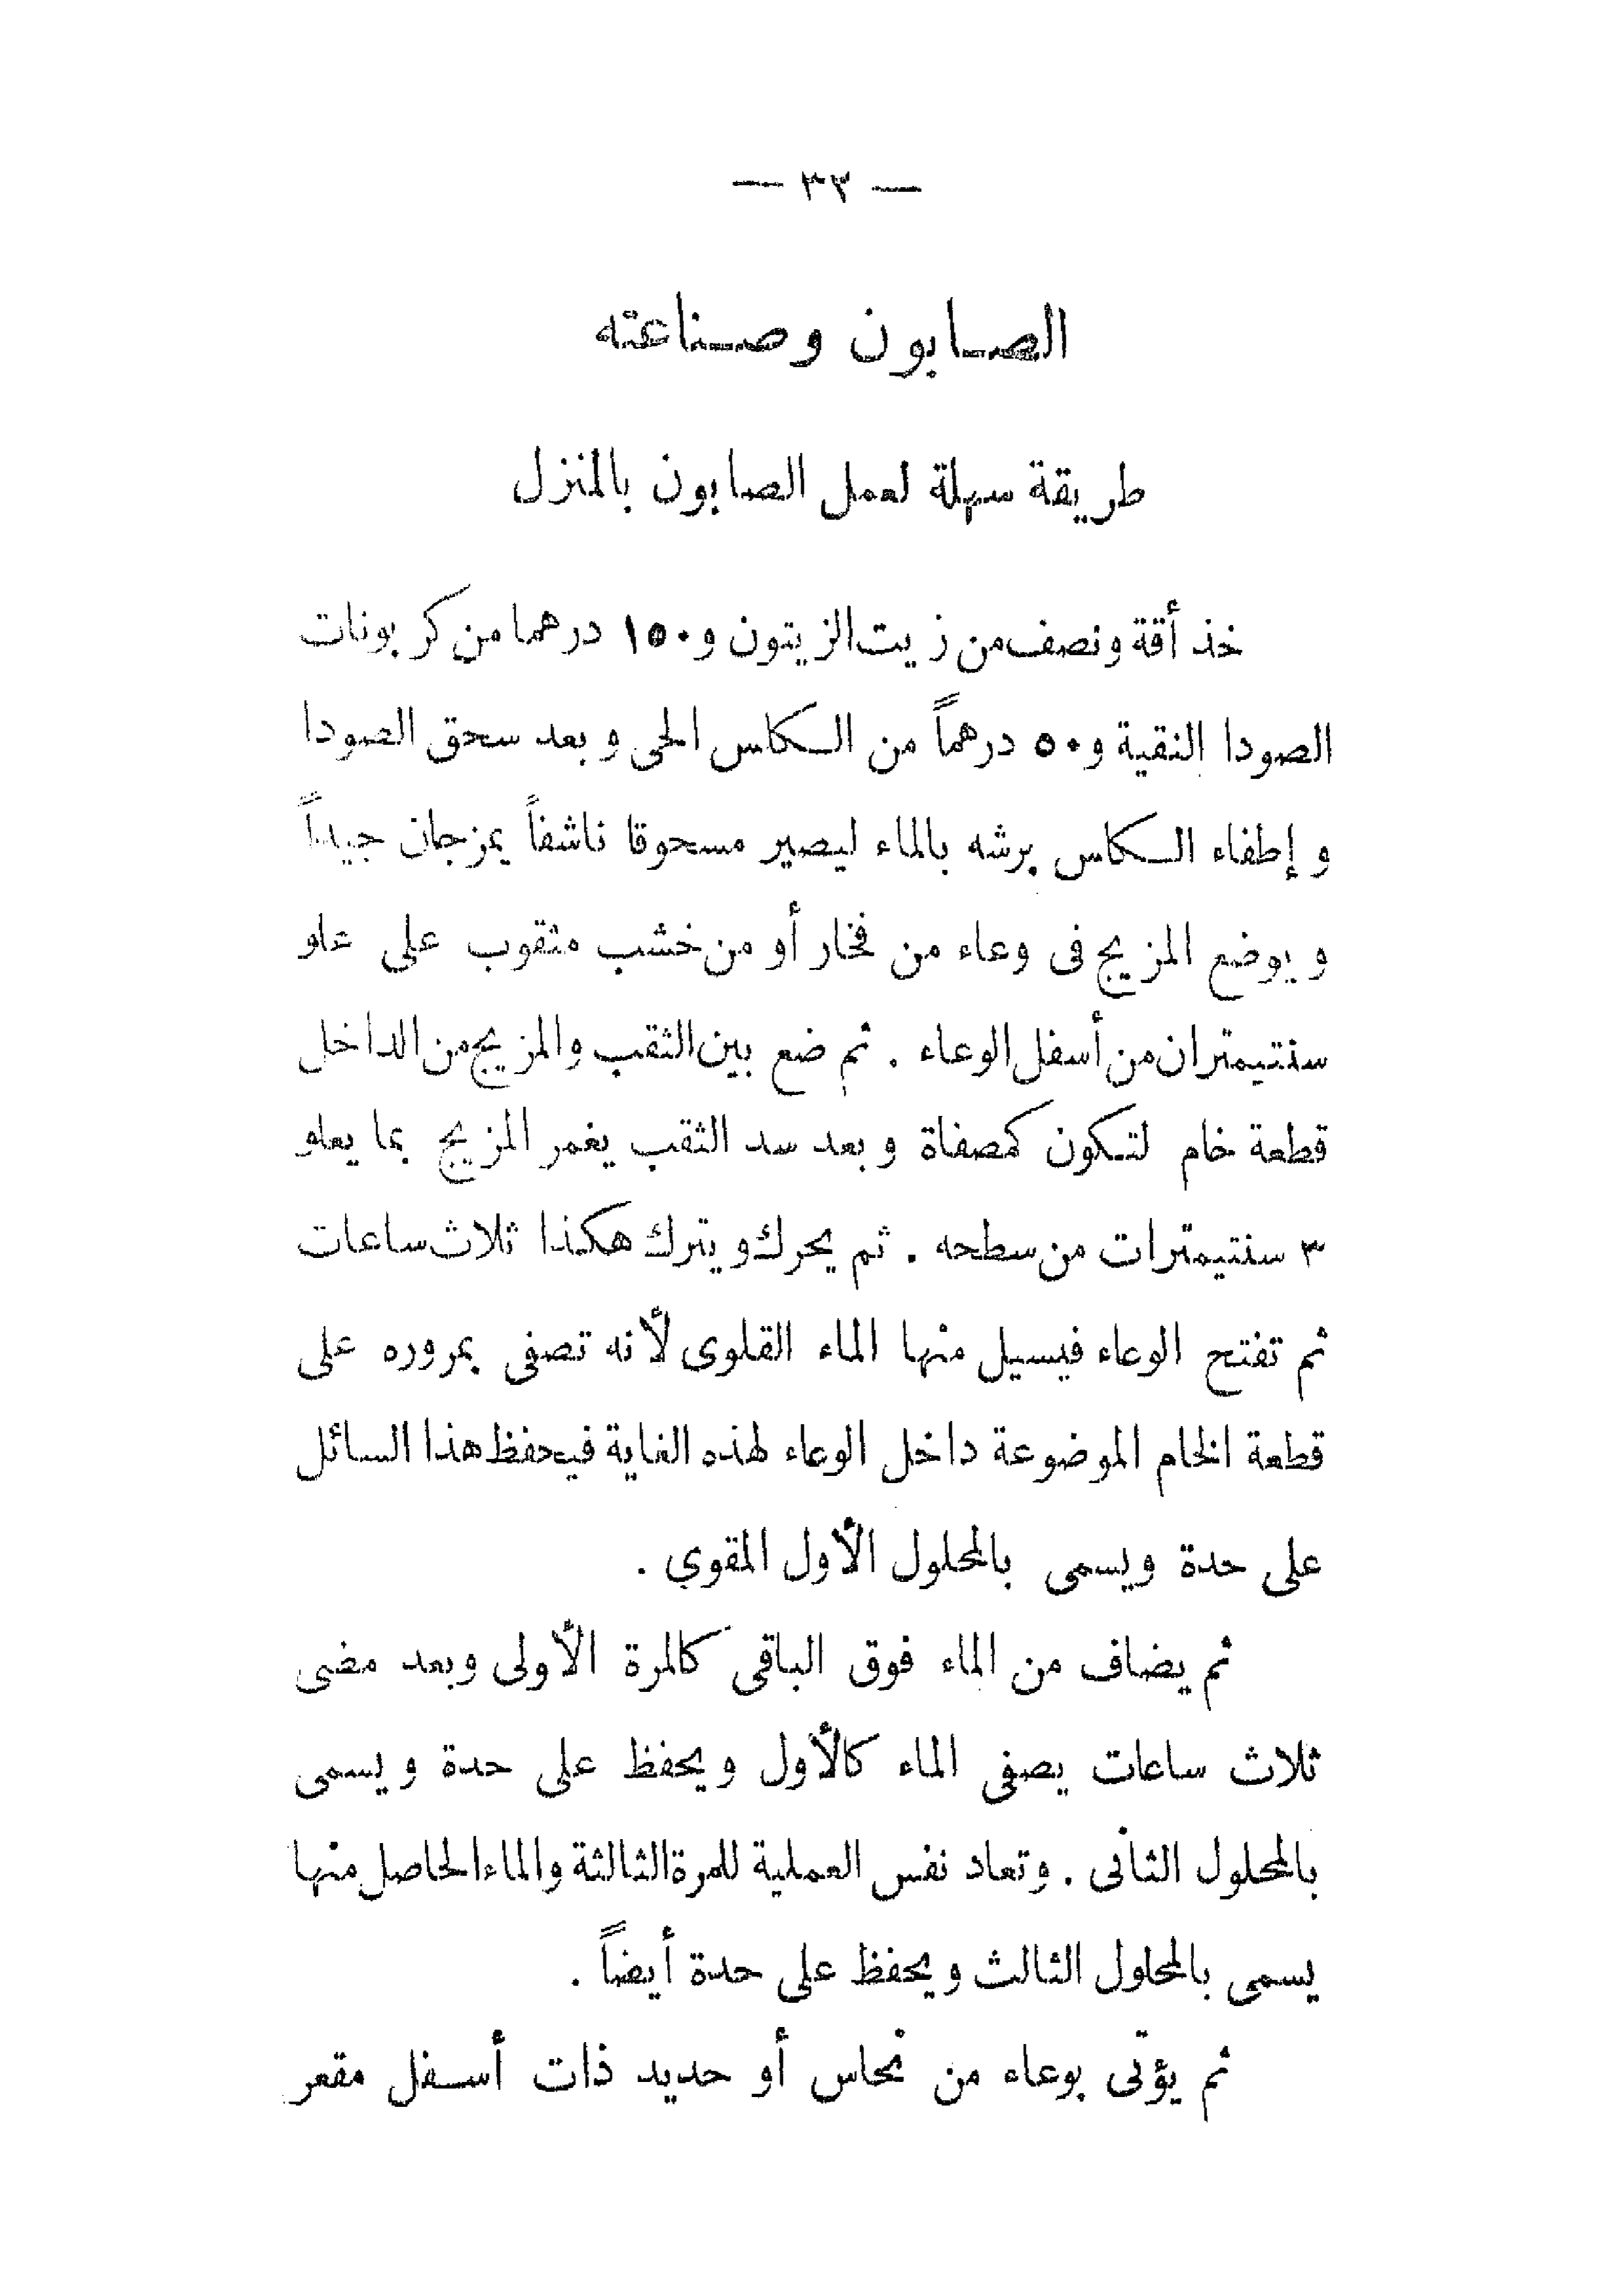 — ٣٣ —
الصابون وصناعته
طريقة سهلة لعمل الصابون بالمنزل
خذ أقة ونصف من زيت الزيتون و١٥٠ درهما من كربونات
الصودا النقية و٥٠ درهماً من الكلس الحى وبعد سحق الصودا
وإطفاء الكلس برشه بالماء ليصير مسحوقا ناشفاً يمزجان جيداً
ويوضع المزيج فى وعاء من فخار أو من خشب مثقوب على علو
سنتيمتران من أسفل الوعاء . ثم ضع بين الثقب والمزيج من الداخل
قطعة خام لتكون كمصفاة وبعد سد الثقب يغمر المزيج بما يعلو
٣ سنتيمترات من سطحه . ثم يحرك ويترك هكذا ثلاث ساعات
ثم تفتح الوعاء فيسيل منها الماء القلوى لأنه تصفى بمروره على
قطعة الخام الموضوعة داخل الوعاء لهذه الغاية فيحفظ هذا السائل
على حدة ويسمى بالمحلول الأول المقوي .
ثم يضاف من الماء فوق الباقى كالمرة الأولى وبعد مضى
ثلاث ساعات يصفى الماء كالأول ويحفظ على حدة ويسمى
بالمحلول الثانى . وتعاد نفس العملية للمرة الثالثة والماء الحاصل منها
يسمى بالمحلول الثالث ويحفظ على حدة أيضاً .
ثم يؤتى بوعاء من نحاس أو حديد ذات أسفل مقعر